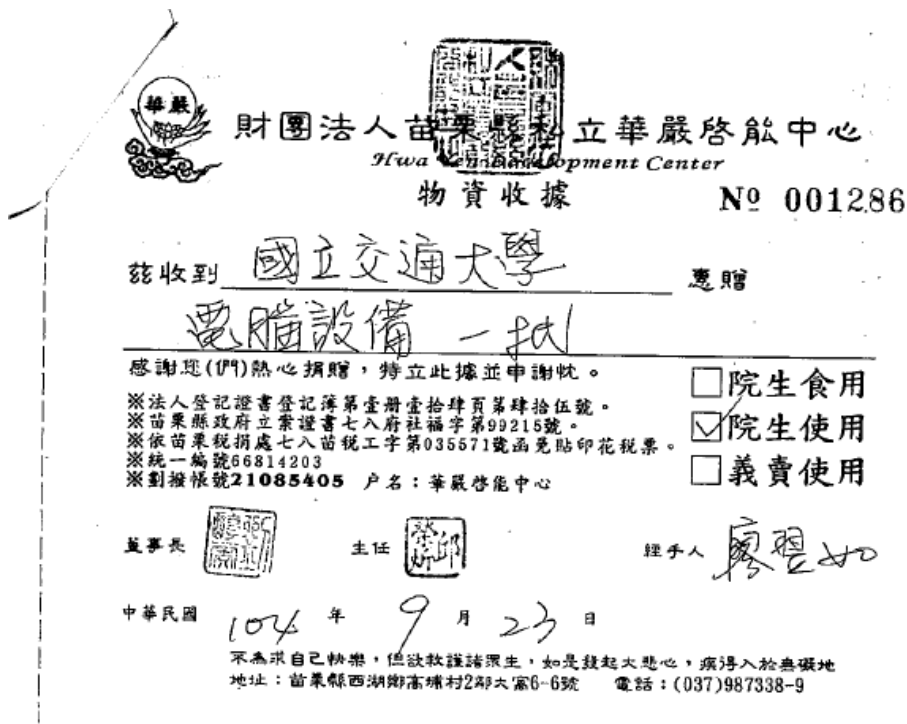 華嚴
財團法人苗栗縣私立華嚴啓能中心
Hwa Yen Development Center
物資收據
№ 001286
茲收到 國立交通大學 惠贈
電腦設備 一批
感謝您(們)熱心捐贈,特立此據並申謝忱。
※法人登記證書登記簿第壹册壹拾肆頁第肆拾伍號。
※苗栗縣政府立案證書七八府社福字第99215號。
※依苗栗稅捐處七八苗稅工字第035571號函免貼印花稅票。
※統一編號66814203
※劃撥帳號21085405 戶名:華嚴啓能中心
□院生食用
☑院生使用
□義賣使用
董事長 主任 經手人 廖翌如
中華民國 104 年 9 月 23 日
不為求自己快樂,但欲救護諸眾生,如是發起大悲心,疾得入於無礙地
地址:苗栗縣西湖鄉高埔村2鄰大窩6-6號 電話:(037)987338-9